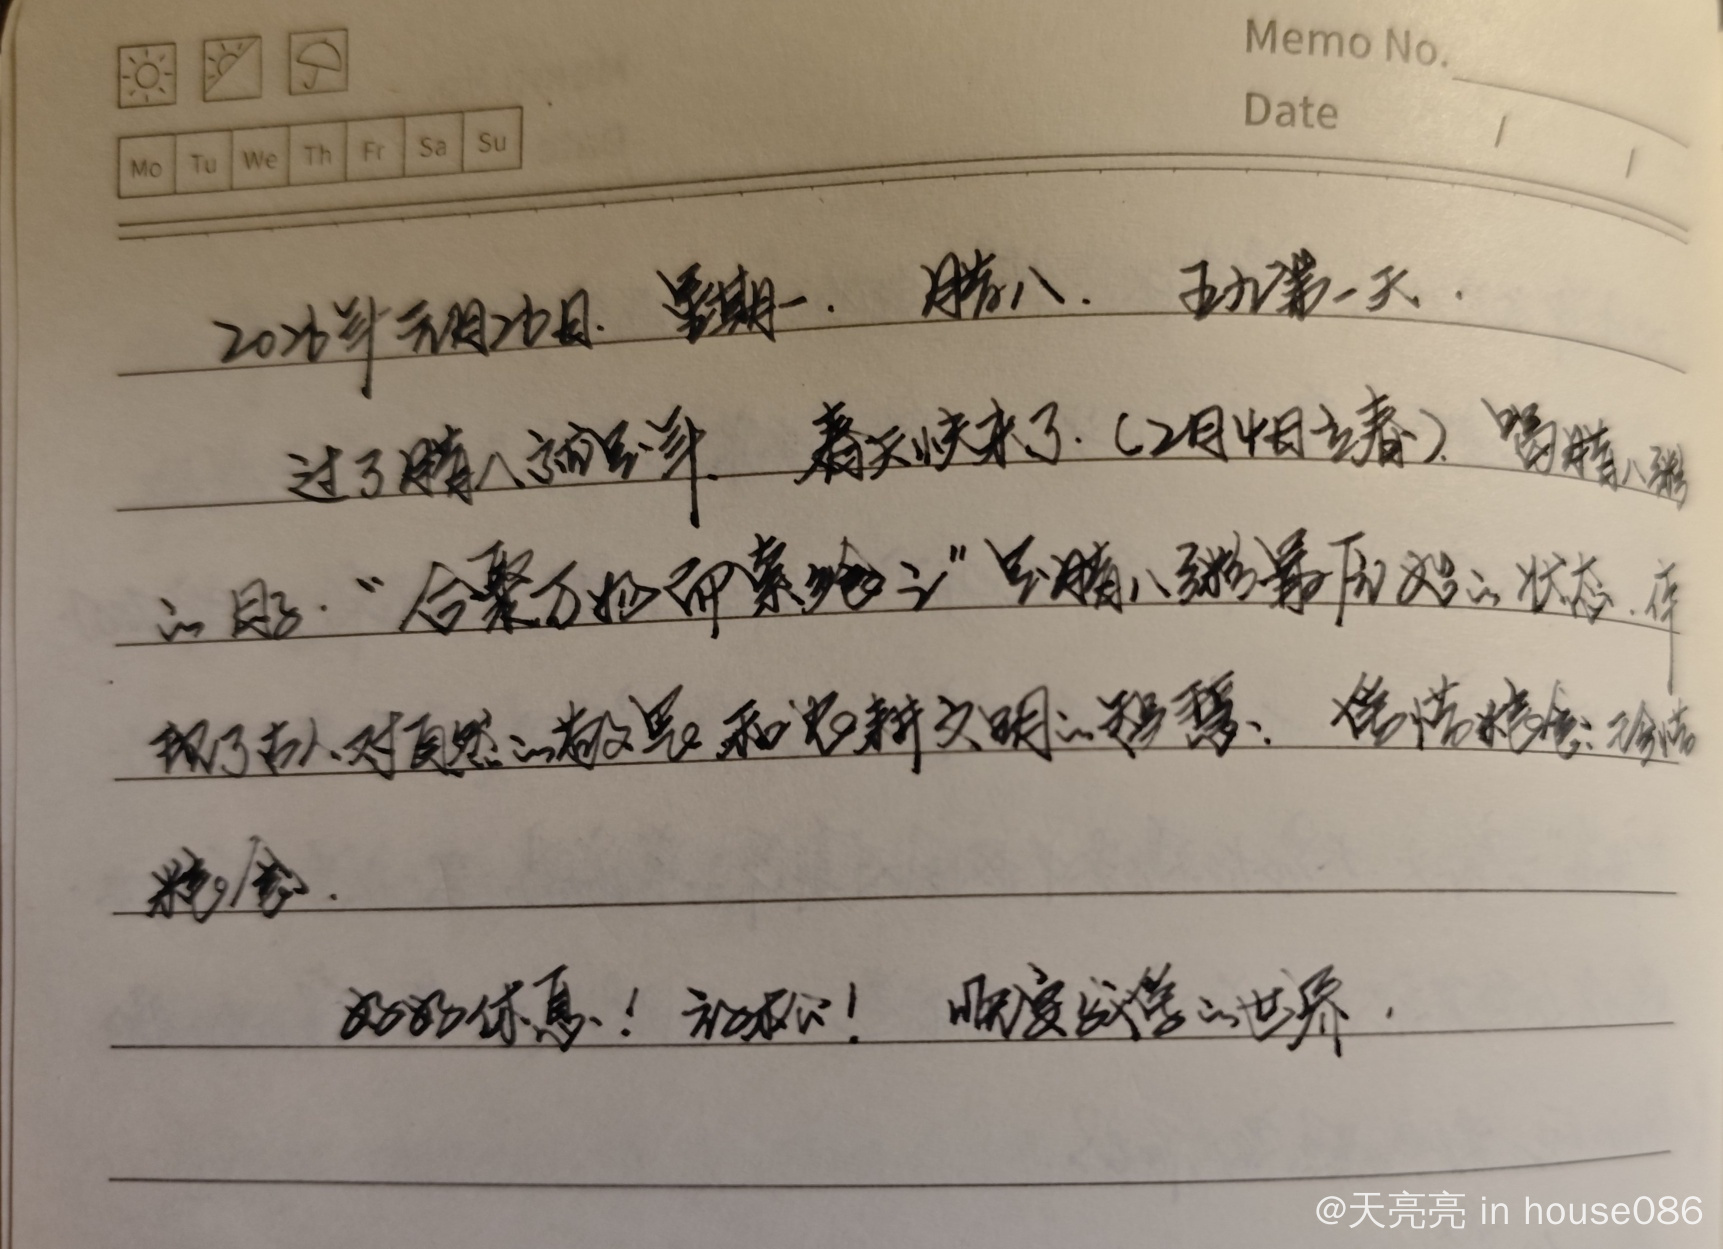 Memo No.
Date / /
Mo Tu We Th Fr Sa Su
2026年元月26日. 星期一. 腊八. 五九第一天.
过了腊八就是年. 春天快来了.(2月4日立春). 喝腊八粥
的日子. “合聚万物而索飨之”是腊八粥最原始的状态. 体
现了古人对自然的敬畏和农耕文明的智慧.
粮食.
好好休息! 放松! 的世界.
@天亮亮 in house086